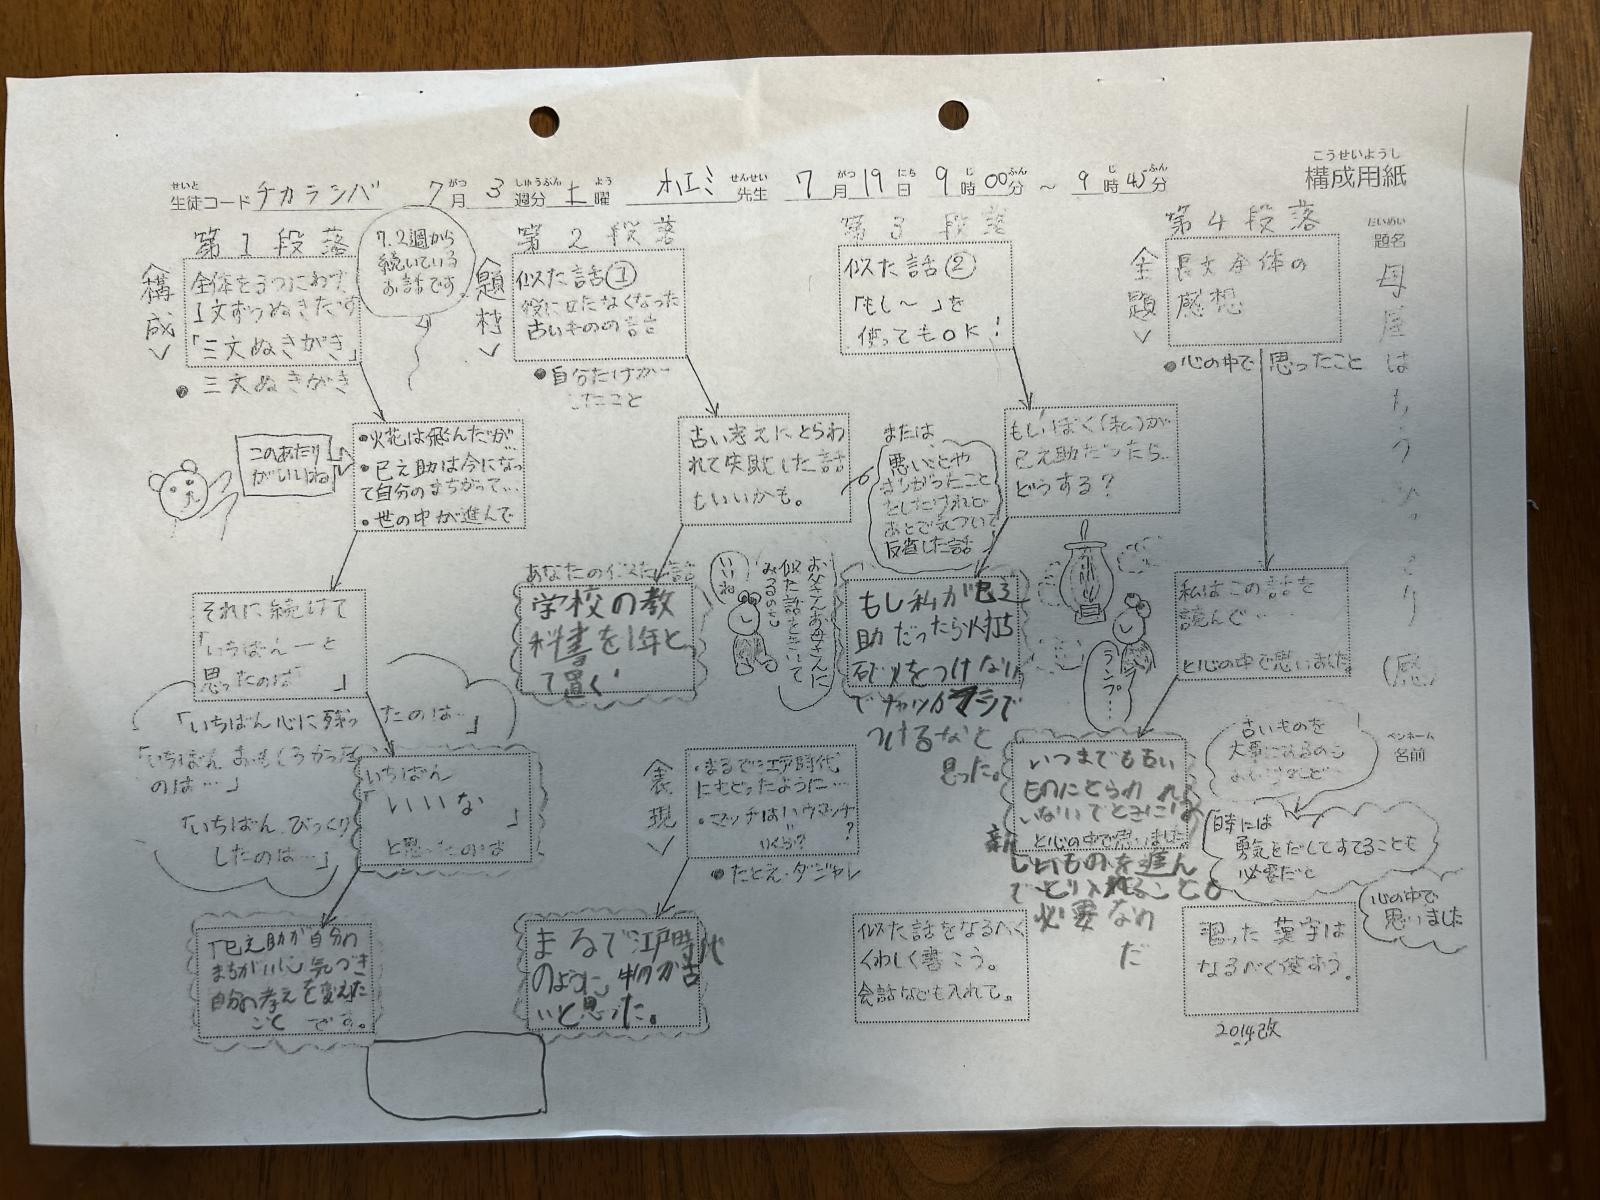 こうせいようし
構成用紙
せいと
生徒コード チカラシバ 7月 3週分 土曜 先生 7月19日 9時00分 ～ 9時45分
だいめい
題名
母屋はもうひっくり(感)
ペンネーム
名前
第1段落
<構成>
全体を3つにわけ
1文ずつぬきだす
「三文ぬきがき」
●三文ぬきがき
7.2週から
続いている
お話です
このあたり
がいいね
・火花は飛んだが…
・巳之助は今になっ
て自分のまちがって…
・世の中が進んで
それに続けて
「いちばん―と
思ったのは 」
「いちばん心に残ったのは…」
「いちばんおもしろかった
のは…」
「いちばんびっくり
したのは…」
いちばん
「いいな」
と思ったのは
「巳之助が自分の
まちがいに気づき
自分の考えを変えた
ことです。
第2段落
<題材>
似た話①
役に立たなくなった
古いものの話
●自分だけが…
したこと
古い考えにとらわ
れて失敗した話
もいいかも。
または、
悪いことや
まちがったこと
をしたけれど
あとで気づいて
反省した話
あなたの似た話
学校の教
科書を1年と
て置く
いいね
お父さんお母さんに
似た話をきいて
みるのも
<表現>
・まるで江戸時代
にもどったように…
・マッチはハウマッチ
いくら?
?
●たとえ・ダジャレ
まるで江戸時代
のように、物が古
いと思った。
第3段落
似た話②
「もし～」を
使ってもOK!
もしぼく(私)が
巳之助だったら…
どうする?
もし私が巳之
助だったら火打ち
石で火をつけない
でチャッカマンで
つけるなと
思った。
ランプ…
似た話をなるべく
くわしく書こう。
会話なども入れて。
第4段落
<主題>
長文全体の
感想
●心の中で思ったこと
私はこの話を
読んで……
と心の中で思いました。
いつまでも古い
ものにとらわれ
ないでときには
と心の中で思いました
新
しいものを進ん
でとり入れることも
必要なの
だ
古いものを
大事にするのも
時には
勇気をだしてすてることも
必要だと
心の中で
思いました
習った漢字は
なるべく使おう。
2014改